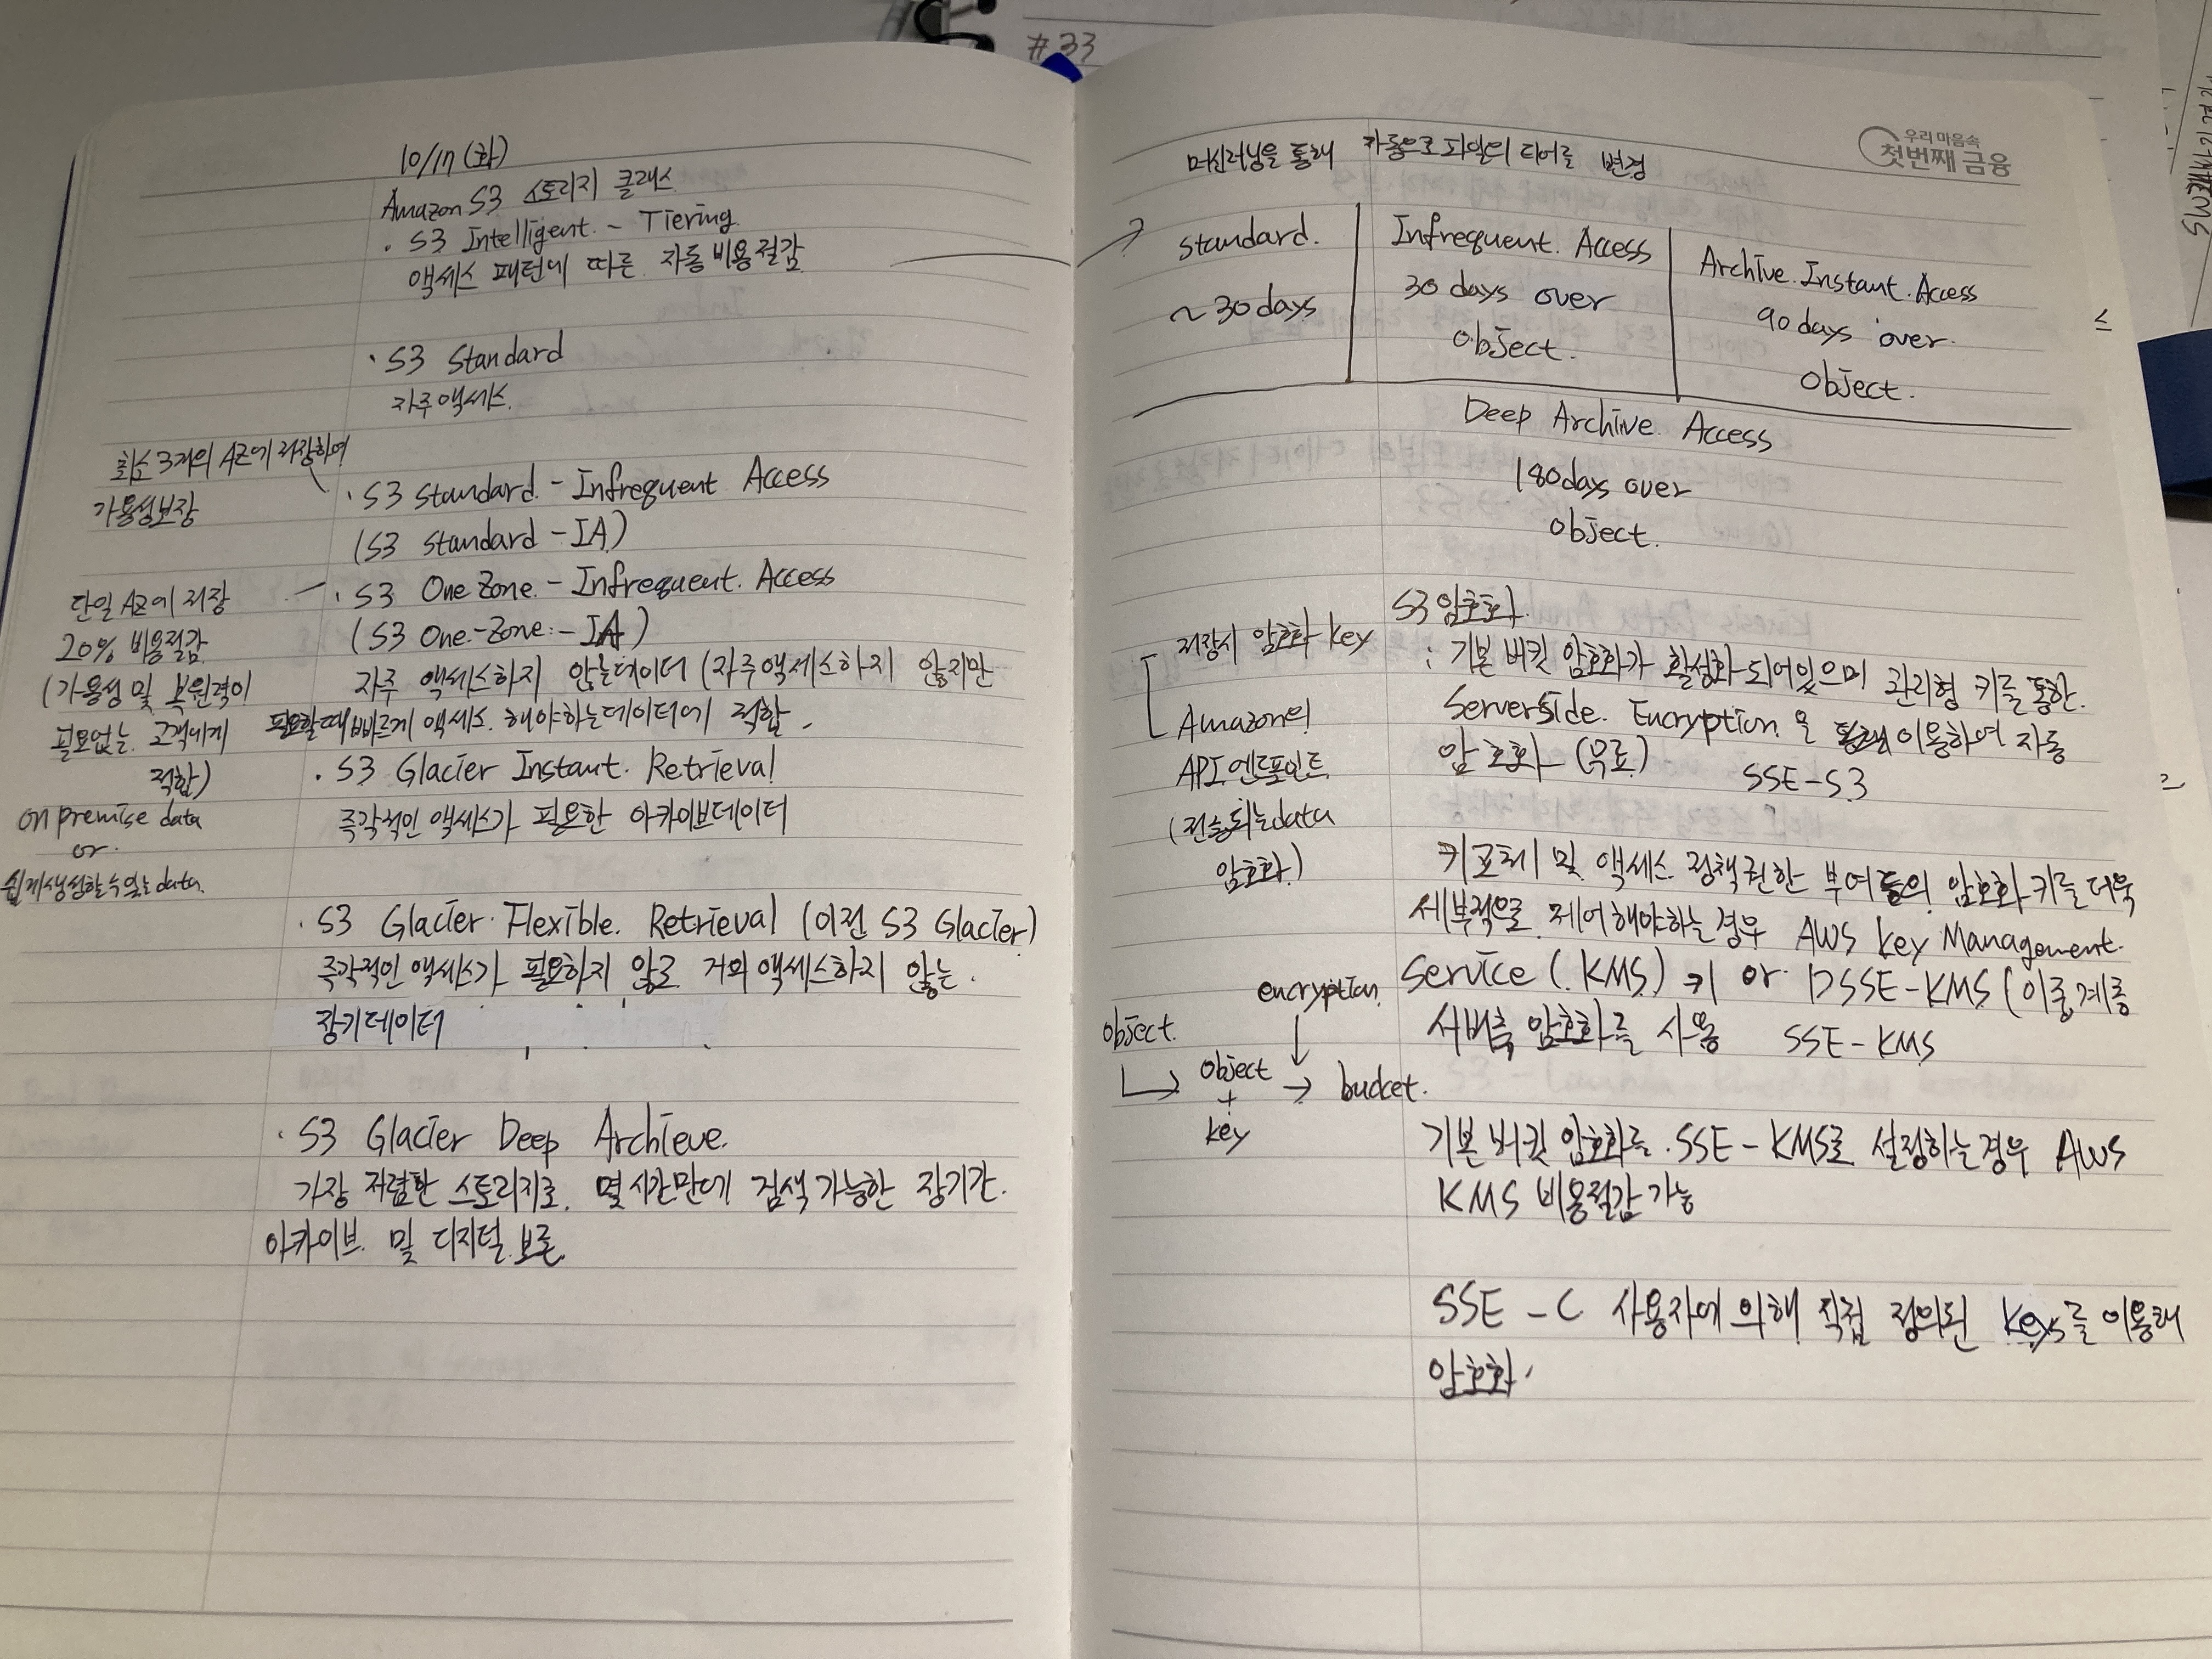 #33
10/17 (화)
Amazon S3 스토리지 클래스
· S3 Intelligent - Tiering
액세스 패턴에 따른 자동 비용절감
· S3 Standard
자주액세스
최소 3개의 AZ에 저장하여
가용성보장
· S3 Standard - Infrequent Access
(S3 Standard - IA)
단일 AZ에 저장
20% 비용절감
(가용성 및 복원력이
필요없는 고객에게
적합)
on premise data
or
쉽게생성할수있는data
· S3 One Zone - Infrequent Access
(S3 One-Zone - IA)
자주 액세스하지 않는데이터 (자주액세스하지 않지만
필요할때빠르게 액세스 해야하는데이터에 적합.
· S3 Glacier Instant Retrieval
즉각적인 액세스가 필요한 아카이브데이터
· S3 Glacier Flexible Retrieval (이전 S3 Glacier)
즉각적인 액세스가 필요하지 않고 거의 액세스하지 않는
장기데이터
· S3 Glacier Deep Archieve
가장 저렴한 스토리지로 몇시간만에 검색가능한 장기간
아카이브 및 디지털 보존
우리 마음속
첫번째 금융
머신러닝을 통해 자동으로 파일의 티어를 변경
→ Standard
~30days
Infrequent Access
30 days over
object
Archive Instant Access
90days over
object
Deep Archive Access
180days over
object
저장시 암호화 key
Amazon의
API 엔드포인트
(전송되는data
암호화)
S3 암호화
: 기본 버킷 암호화가 활성화 되어있으며 관리형 키를 통한
ServerSide Encryption 을 이용하여 자동
암호화 (무료) SSE-S3
키교체 및 액세스 정책권한 부여 등의 암호화 키를 더욱
세부적으로 제어해야하는 경우 AWS Key Management
Service (KMS) 키 or DSSE-KMS (이중계층
서버측 암호화를 사용 SSE-KMS
encryption
↓
object
→ object → bucket
+
key
기본 버킷 암호화를 SSE-KMS로 설정하는경우 AWS
KMS 비용절감 가능
SSE - C 사용자에 의해 직접 정의된 Keys를 이용해
암호화.